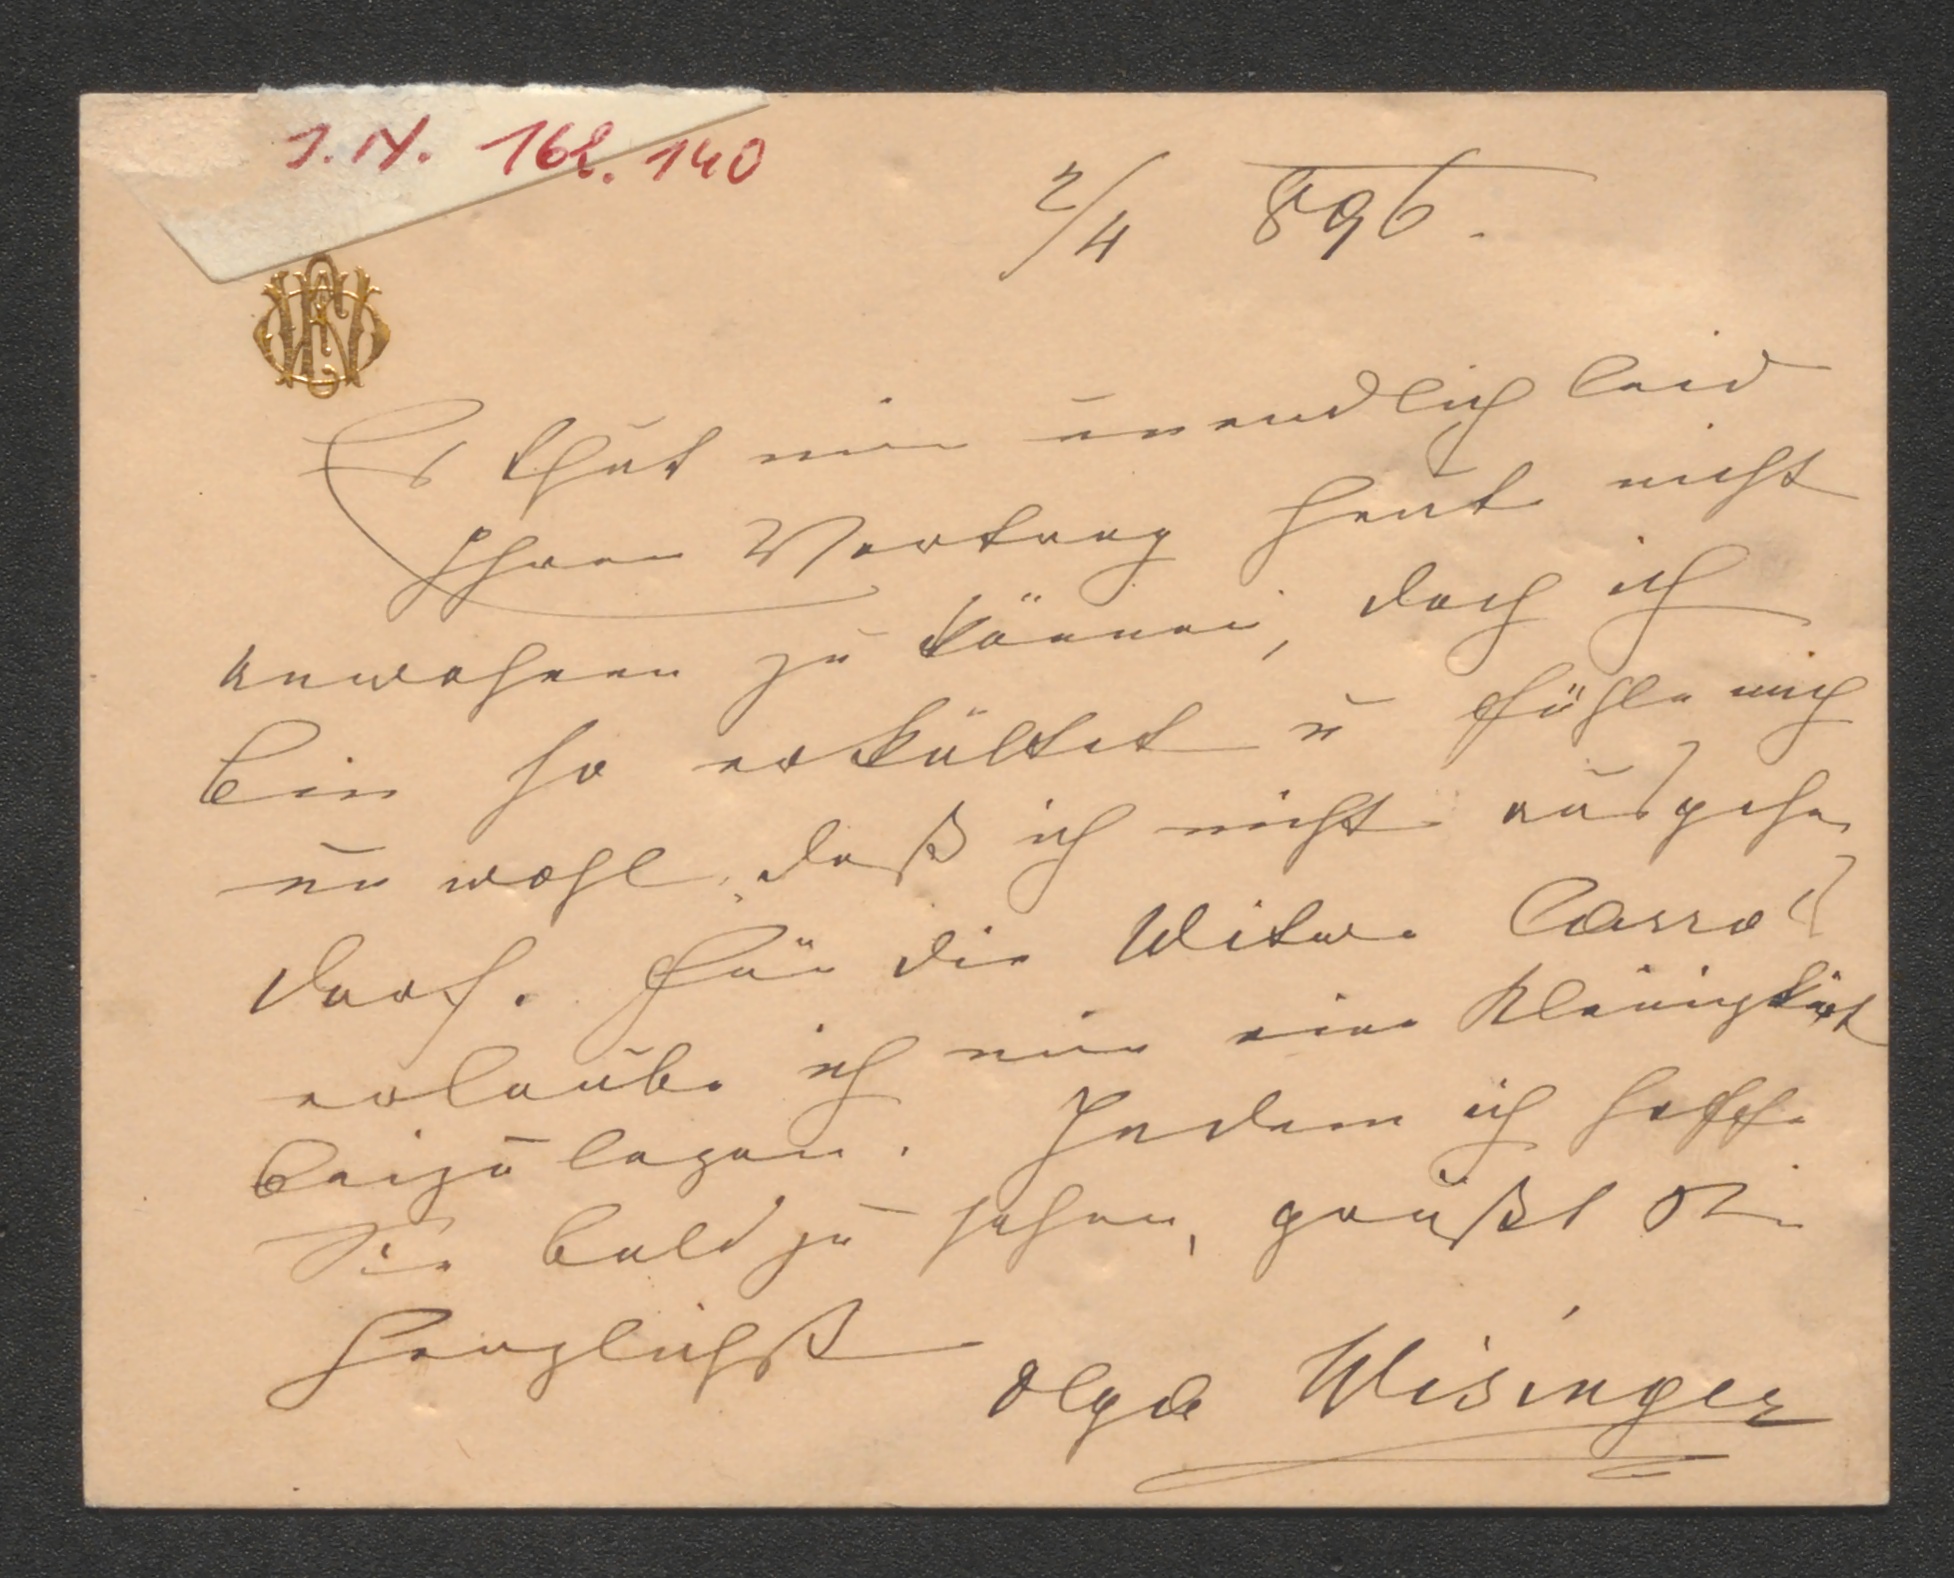 J. N. 162.140
2/4 896.
Es thut mir unendlich leid
Ihren Vortrag heut nicht
anwohnen zu können, doch ich
bin so erkältet u fühle mich
un wohl, daß ich nicht ausgehen
darf. Für die Witwe
erlaube ich mir eine Kleinigkeit
beizulegen. Indem ich hoffe
Sie bald zu sehen, grüßt Sie
herzlichst
Olga Wisinger